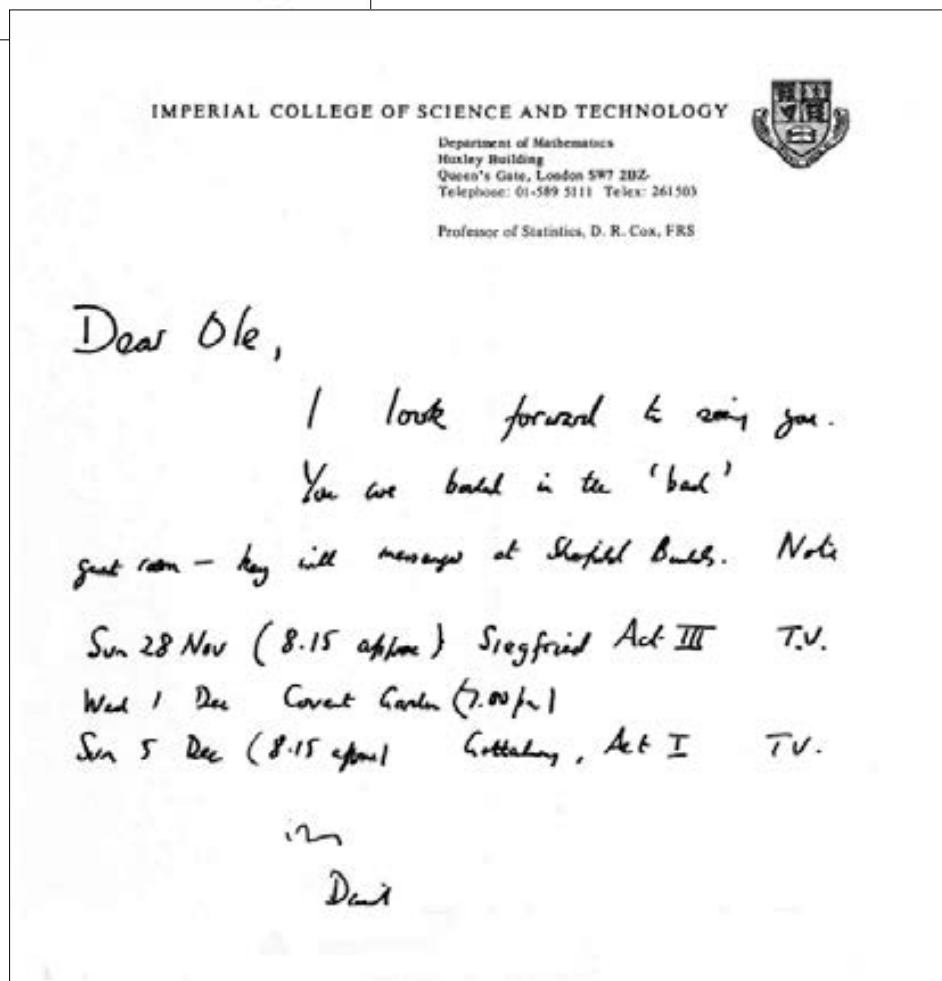 IMPERIAL COLLEGE OF SCIENCE AND TECHNOLOGY
Department of Mathematics
Huxley Building
Queen's Gate, London SW7 2BZ
Telephone: 01-589 5111 Telex: 261503
Professor of Statistics, D. R. Cox, FRS
Dear Ole,
I look forward to seeing you.
You are booked in the 'bad'
guest room – key with messenger at Sherfield Note
Sun 28 Nov (8.15 approx) Siegfried Act III T.V.
Wed 1 Dec Covent Garden (7.00 pm)
Sun 5 Dec (8.15 approx) Act I T.V.
David